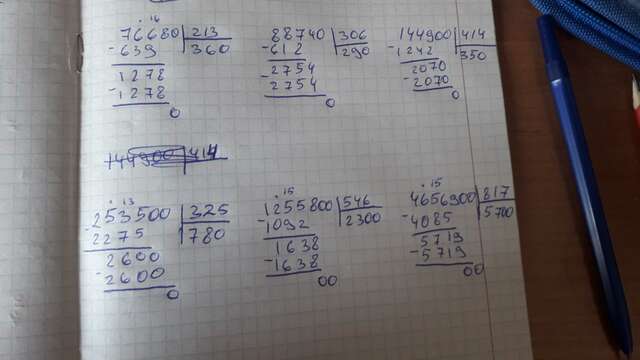 16
76680 213
-639 360
1278
-1278
0
88740 306
-612 290
2754
-2754
0
144900 414
-1242 350
2070
-2070
0
144900 414
13
253500 325
-2275 780
2600
-2600
0
15
1255800 546
-1092 2300
1638
-1638
00
15
4656900 817
-4085 5700
5719
-5719
00